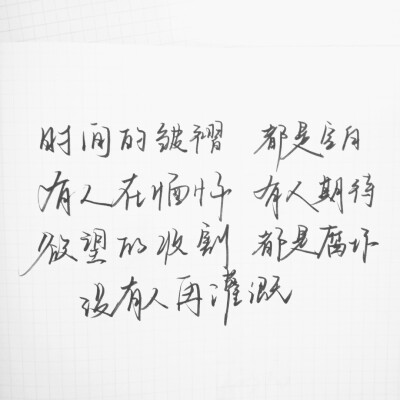 时间的皱褶 都是空白
有人在 有人期待
欲望的收割 都是腐坏
没有人再灌溉